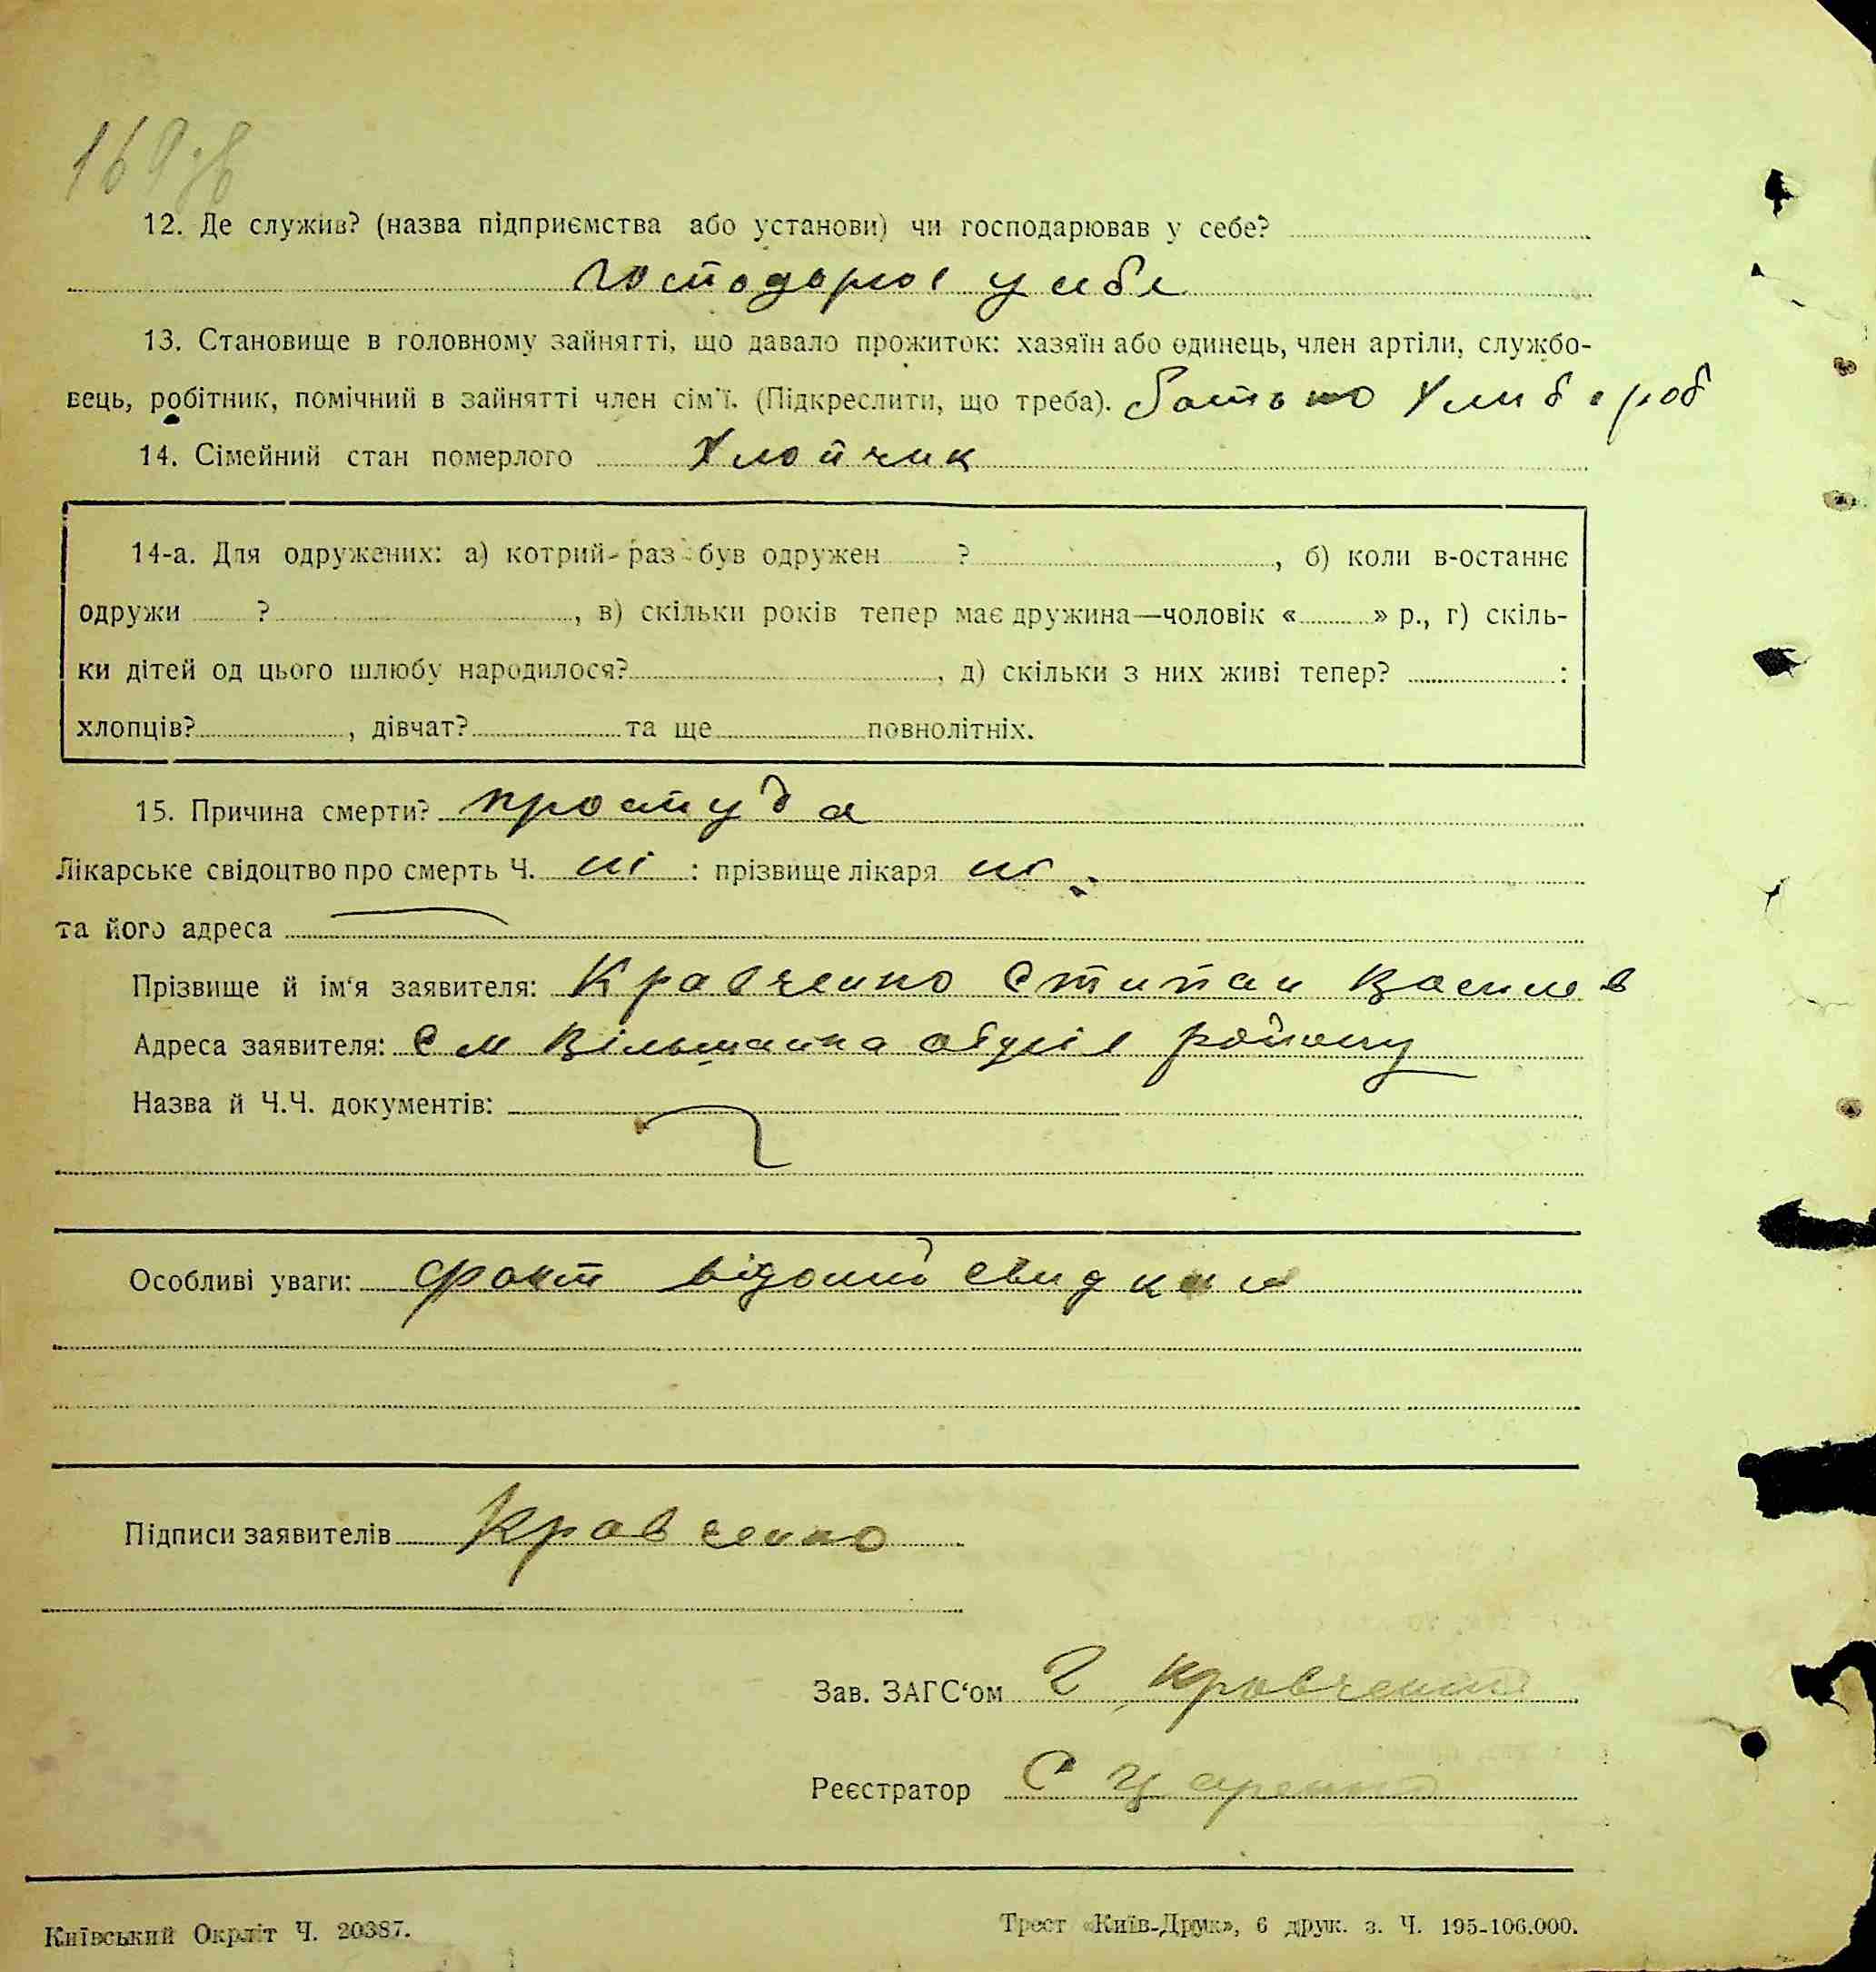 169 зв
12. Де служив? (назва підприємства або установи) чи господарював у себе?
господарює у себе
13. Становище в головному зайнятті, що давало прожиток: хазяїн або одинець, член артіли, службо-
вець, робітник, помічний в зайнятті член сім'ї. (Підкреслити, що треба). батько хлибороб
14. Сімейний стан померлого Хлопчик
14-а. Для одружених: а) котрий раз був одружен ? , б) коли в-останнє
одружи ? , в) скільки років тепер має дружина—чоловік « » р., г) скіль-
ки дітей од цього шлюбу народилося? , д) скільки з них живі тепер? :
хлопців? , дівчат? та ще повнолітніх.
15. Причина смерти? простуда
Лікарське свідоцтво про смерть Ч. ні : прізвище лікаря ні
та його адреса
Прізвище й ім'я заявителя: Кравченко Стипан Васильв
Адреса заявителя: См Вільшанка району
Назва й Ч.Ч. документів:
Особливі уваги: Факт відомий свидкам
Підписи заявителів Кравченко
Зав. ЗАГС'ом Кравченко
Реєстратор С Царенко
Київський Окрліт Ч. 20387.
Трест «Київ-Друк», 6 друк. з. Ч. 195-106.000.